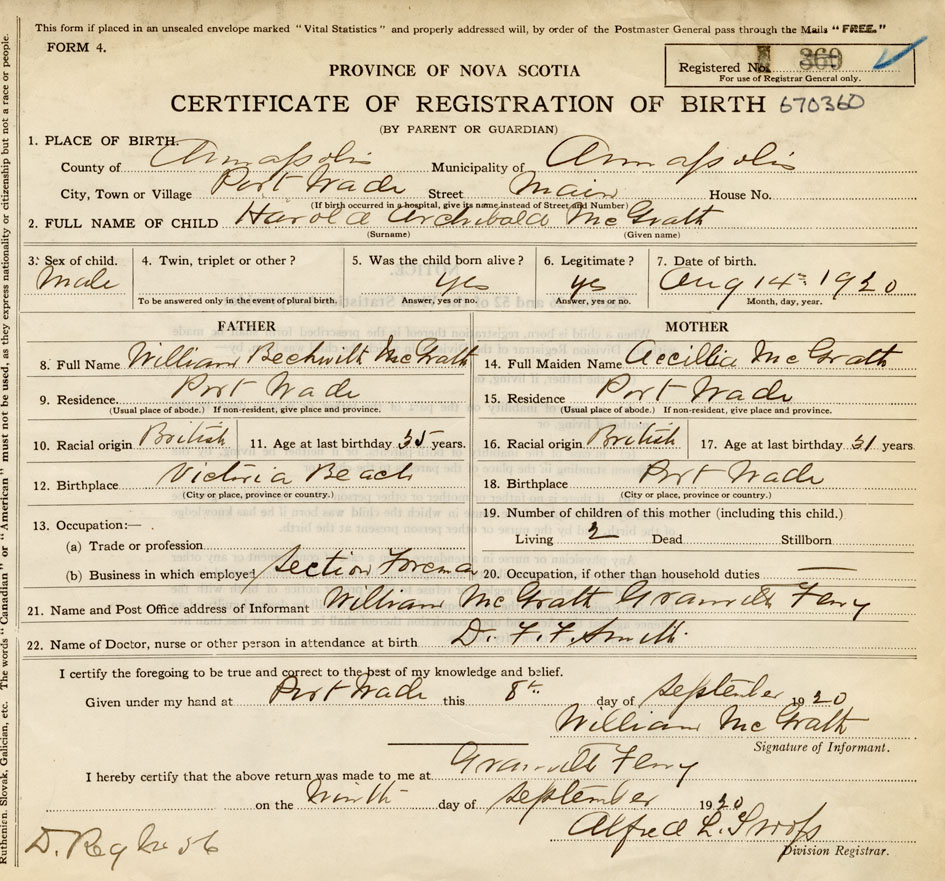 This form if placed in an unsealed envelope marked "Vital Statistics" and properly addressed will, by order of the Postmaster General pass through the Mails "FREE."
FORM 4.
PROVINCE OF NOVA SCOTIA
Registered No. 360
For use of Registrar General only.
CERTIFICATE OF REGISTRATION OF BIRTH 670360
(BY PARENT OR GUARDIAN)
1. PLACE OF BIRTH.
County of Annapolis Municipality of Annapolis
City, Town or Village Port Wade Street Main House No.
(If birth occurred in a hospital, give its name instead of Street and Number)
2. FULL NAME OF CHILD Harold Archibald McGrath
(Surname) (Given name)
3. Sex of child. 4. Twin, triplet or other? 5. Was the child born alive? 6. Legitimate? 7. Date of birth.
Male yes yes Aug 14th 1920
To be answered only in the event of plural birth. Answer, yes or no. Answer, yes or no. Month, day, year.
FATHER MOTHER
8. Full Name William Beckwith McGrath 14. Full Maiden Name Aecillia McGrath
9. Residence. Port Wade 15. Residence Port Wade
(Usual place of abode.) If non-resident, give place and province. (Usual place of abode.) If non-resident, give place and province.
10. Racial origin British 11. Age at last birthday 35 years. 16. Racial origin British 17. Age at last birthday 31 years
12. Birthplace Victoria Beach 18. Birthplace Port Wade
(City or place, province or country.) (City or place, province or country.)
13. Occupation:— 19. Number of children of this mother (including this child.)
(a) Trade or profession Living 2 Dead Stillborn
(b) Business in which employed Section Foreman 20. Occupation, if other than household duties —
21. Name and Post Office address of Informant William McGrath Granville Ferry
22. Name of Doctor, nurse or other person in attendance at birth D. F. F. Smith.
I certify the foregoing to be true and correct to the best of my knowledge and belief.
Given under my hand at Port Wade this 8th day of September 1920
William McGrath
Signature of Informant.
I hereby certify that the above return was made to me at Granville Ferry
on the Ninth day of September 1920
Alfred L.
Division Registrar.
D. Reg No 56
Ruthenien, Slovak, Galician, etc. The words "Canadian" or "American" must not be used, as they express nationality or citizenship but not a race or people.